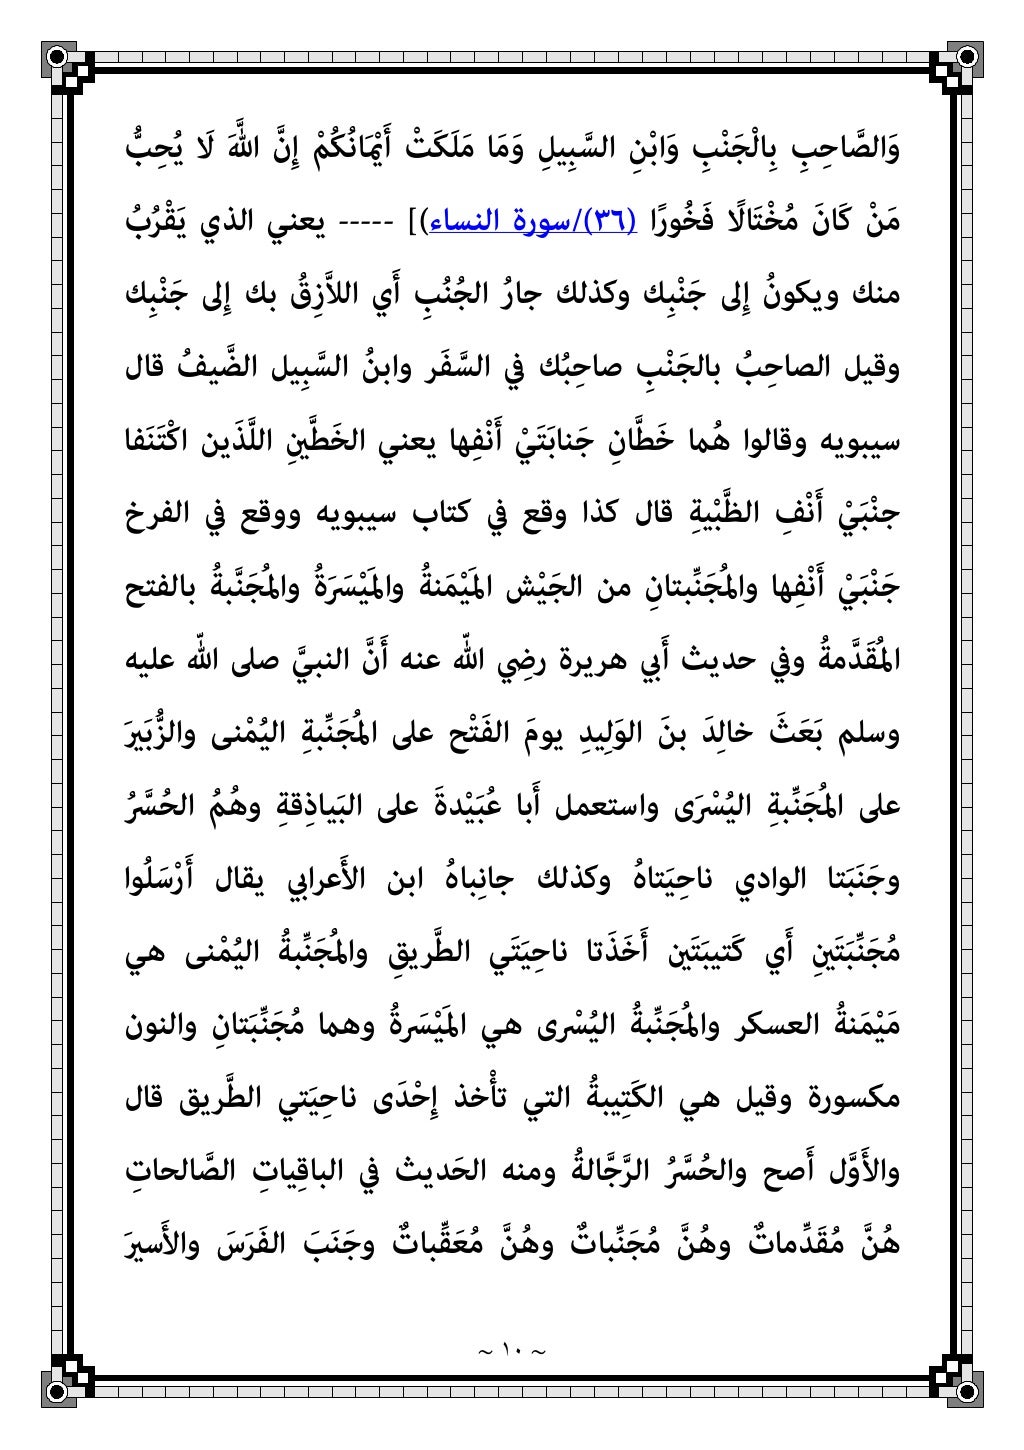 وَالصَّاحِبِ بِالْجَنْبِ وَابْنِ السَّبِيلِ وَمَا مَلَكَتْ أَيْمَانُكُمْ إِنَّ اللَّهَ لَا يُحِبُّ
مَنْ كَانَ مُخْتَالًا فَخُورًا (٣٦)/سورة النساء)] ----- يعني الذي يَقْرُبُ
منك ويكونُ إِلى جَنْبِك وكذلك جارُ الجُنُبِ أَي اللاَّزِقُ بك إِلى جَنْبِك
وقيل الصاحِبُ بالجَنْبِ صاحِبُك في السَّفَر وابنُ السَّبِيل الضَّيفُ قال
سيبويه وقالوا هُما خَطَّانِ جَنابَتَيْ أَنْفِها يعني الخَطَّينِ اللَّذَين اكْتَنَفا
جنْبَيْ أَنْفِ الظَّبْيةِ قال كذا وقع في كتاب سيبويه ووقع في الفرخ
جَنْبَيْ أَنْفِها والمُجَنِّبتانِ من الجَيْش المَيْمَنةُ والمَيْسَرَةُ والمُجَنَّبةُ بالفتح
المُقَدَّمةُ وفي حديث أَبي هريرة رضِي اللّه عنه أَنَّ النبيَّ صلى اللّه عليه
وسلم بَعَثَ خالِدَ بنَ الوَلِيدِ يومَ الفَتْح على المُجَنِّبةِ اليُمْنى والزُّبَيرَ
على المُجَنِّبةِ اليُسْرَى واستعمل أَبا عُبَيْدةَ على البَياذِقةِ وهُمُ الحُسَّرُ
وجَنَبَتا الوادي ناحِيَتاهُ وكذلك جانِباهُ ابن الأَعرابي يقال أَرْسَلُوا
مُجَنِّبَتَينِ أَي كَتيبَتَين أَخَذَتا ناحِيَتَي الطَّريقِ والمُجَنِّبةُ اليُمْنى هي
مَيْمَنةُ العسكر والمُجَنِّبةُ اليُسْرى هي المَيْسَرةُ وهما مُجَنِّبَتانِ والنون
مكسورة وقيل هي الكَتِيبةُ التي تأْخذ إِحْدَى ناحِيَتي الطَّريق قال
والأَوَّل أَصح والحُسَّرُ الرَّجَّالةُ ومنه الحَديث في الباقِياتِ الصَّالحاتِ
هُنَّ مُقَدِّماتٌ وهُنَّ مُجَنِّباتٌ وهُنَّ مُعَقِّباتٌ وجَنَبَ الفَرَسَ والأَسيرَ
~ ١٠ ~